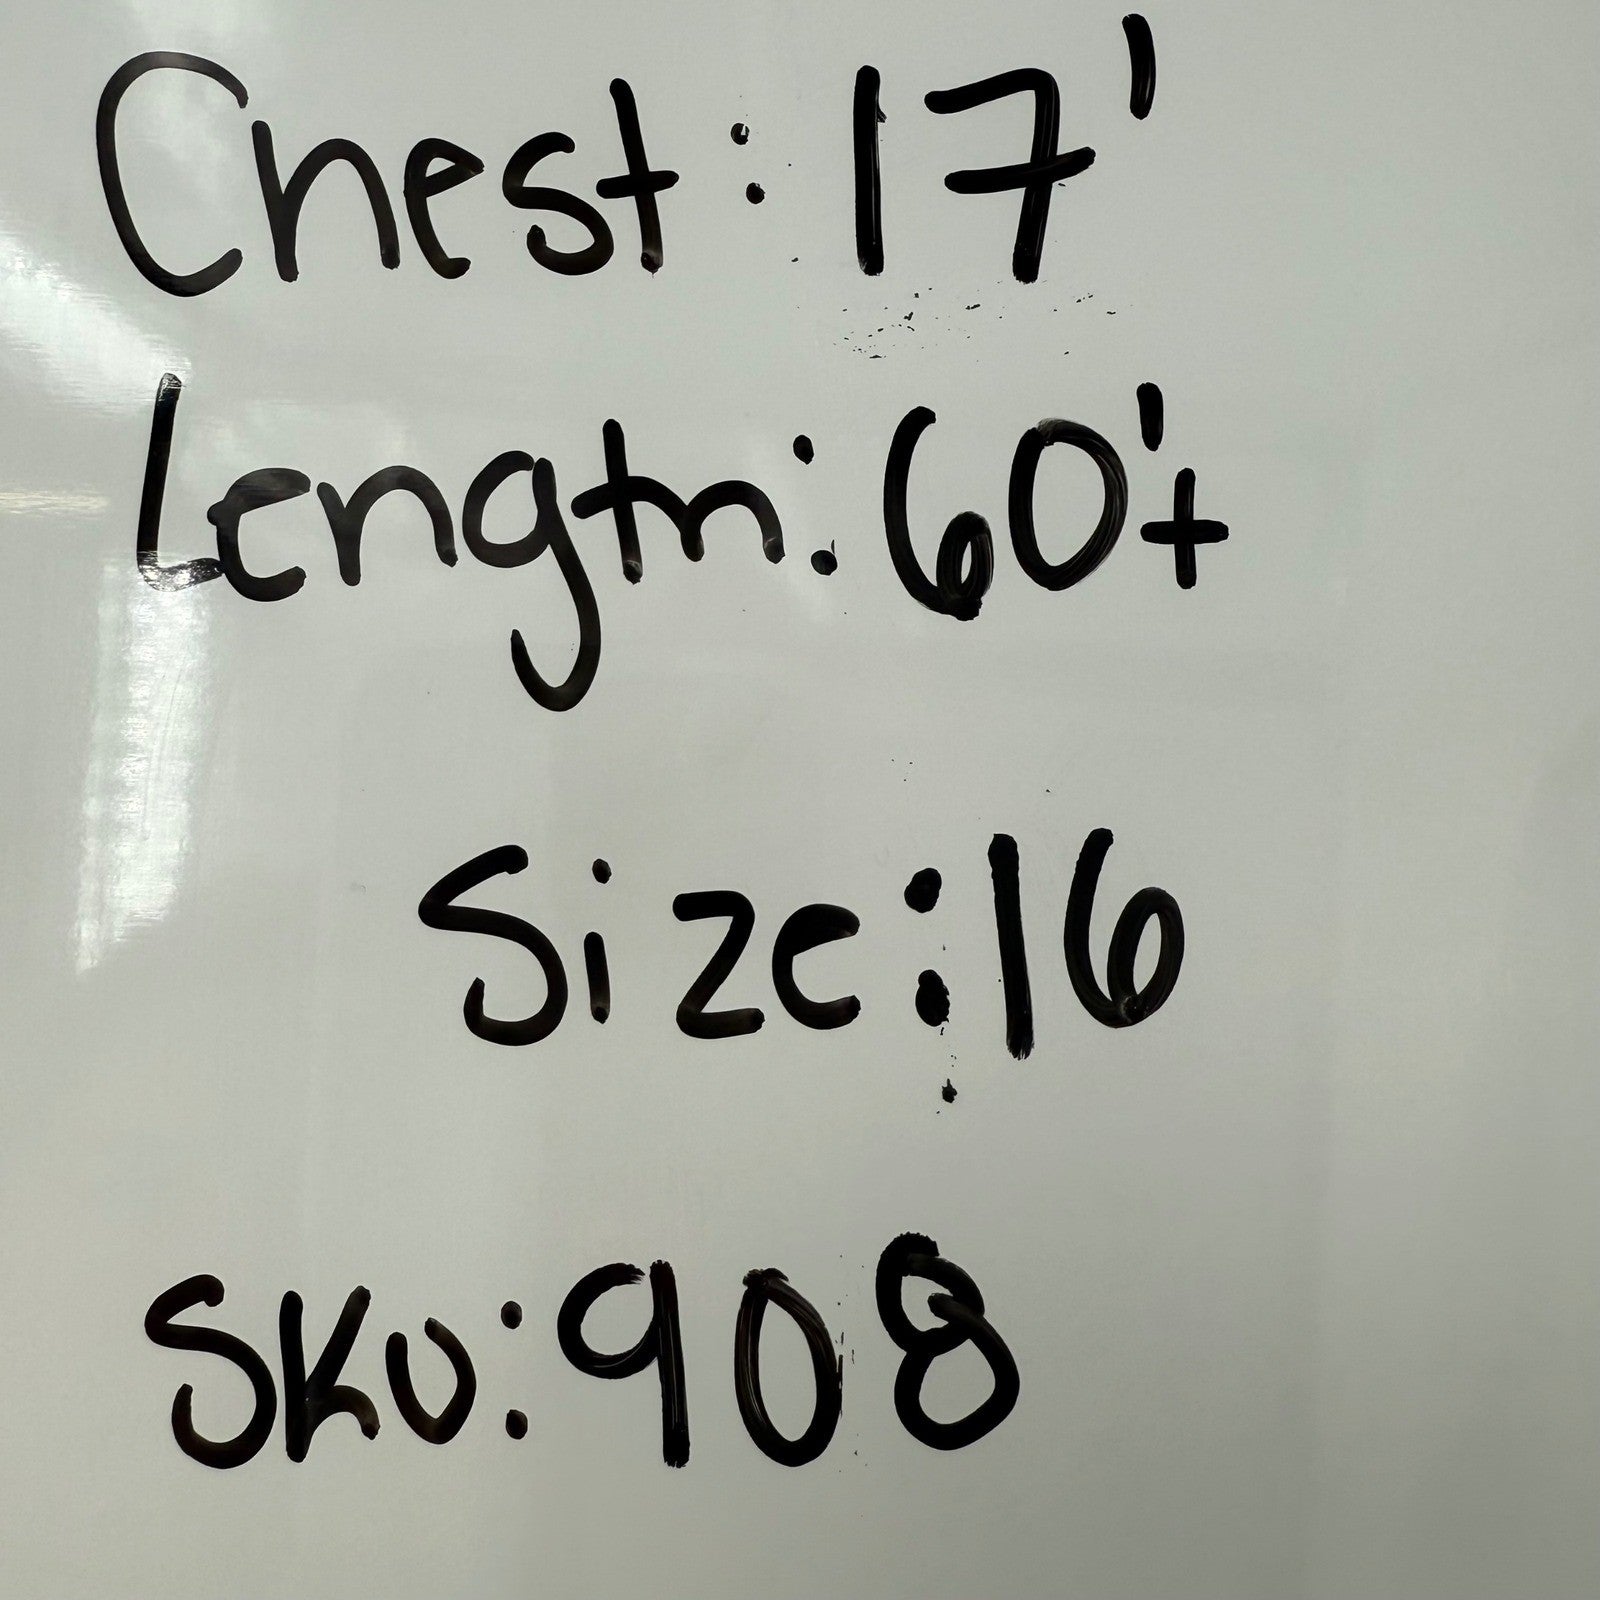 Chest: 17'
Length: 60'+
Size: 16
SKU: 908